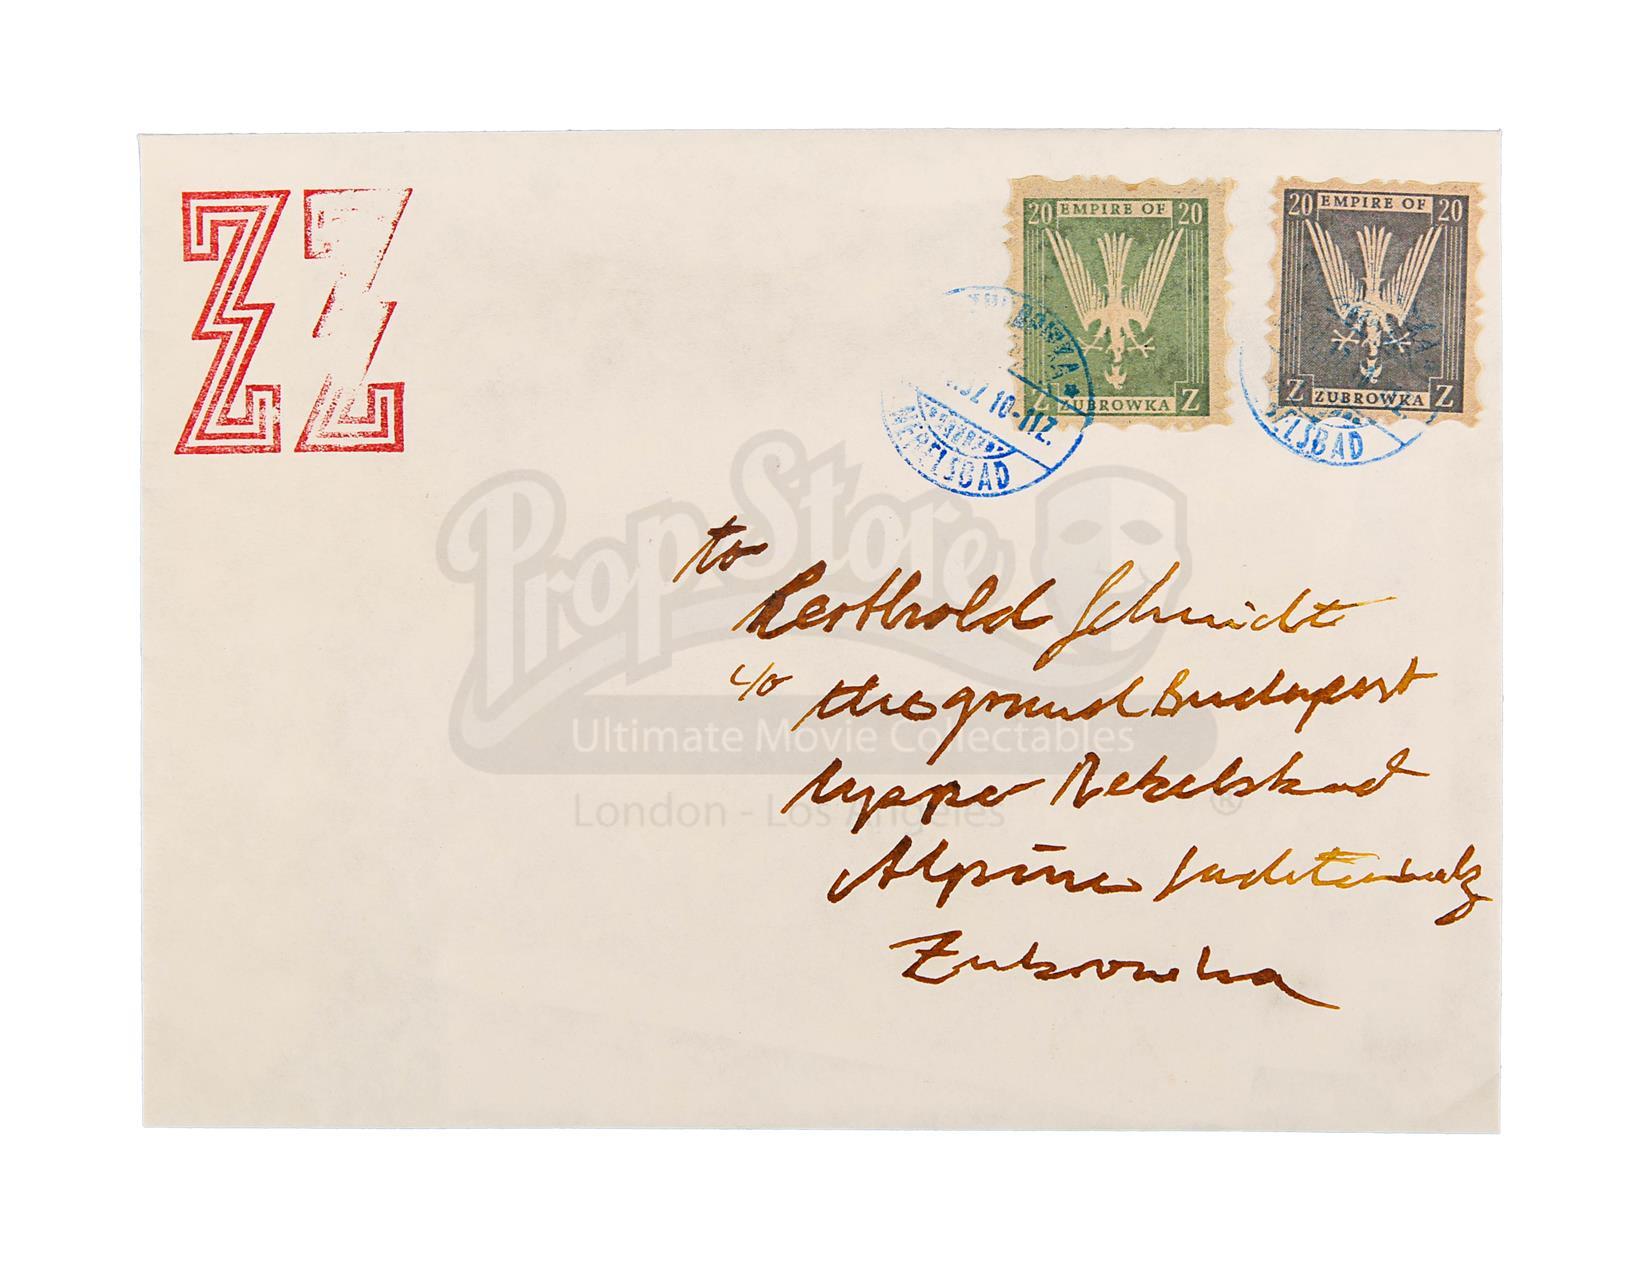 ZZ
20 EMPIRE OF 20
Z ZUBROWKA Z
20 EMPIRE OF 20
Z ZUBROWKA Z
32 10-11Z.
NEBELSBAD
ELSBAD
to
Berthold Schmidt
c/o the grand Budapest
Upper Nebelsbad
Alpine Sudetenwaltz
Zubrowka
Prop Store
Ultimate Movie Collectables
London - Los Angeles
®